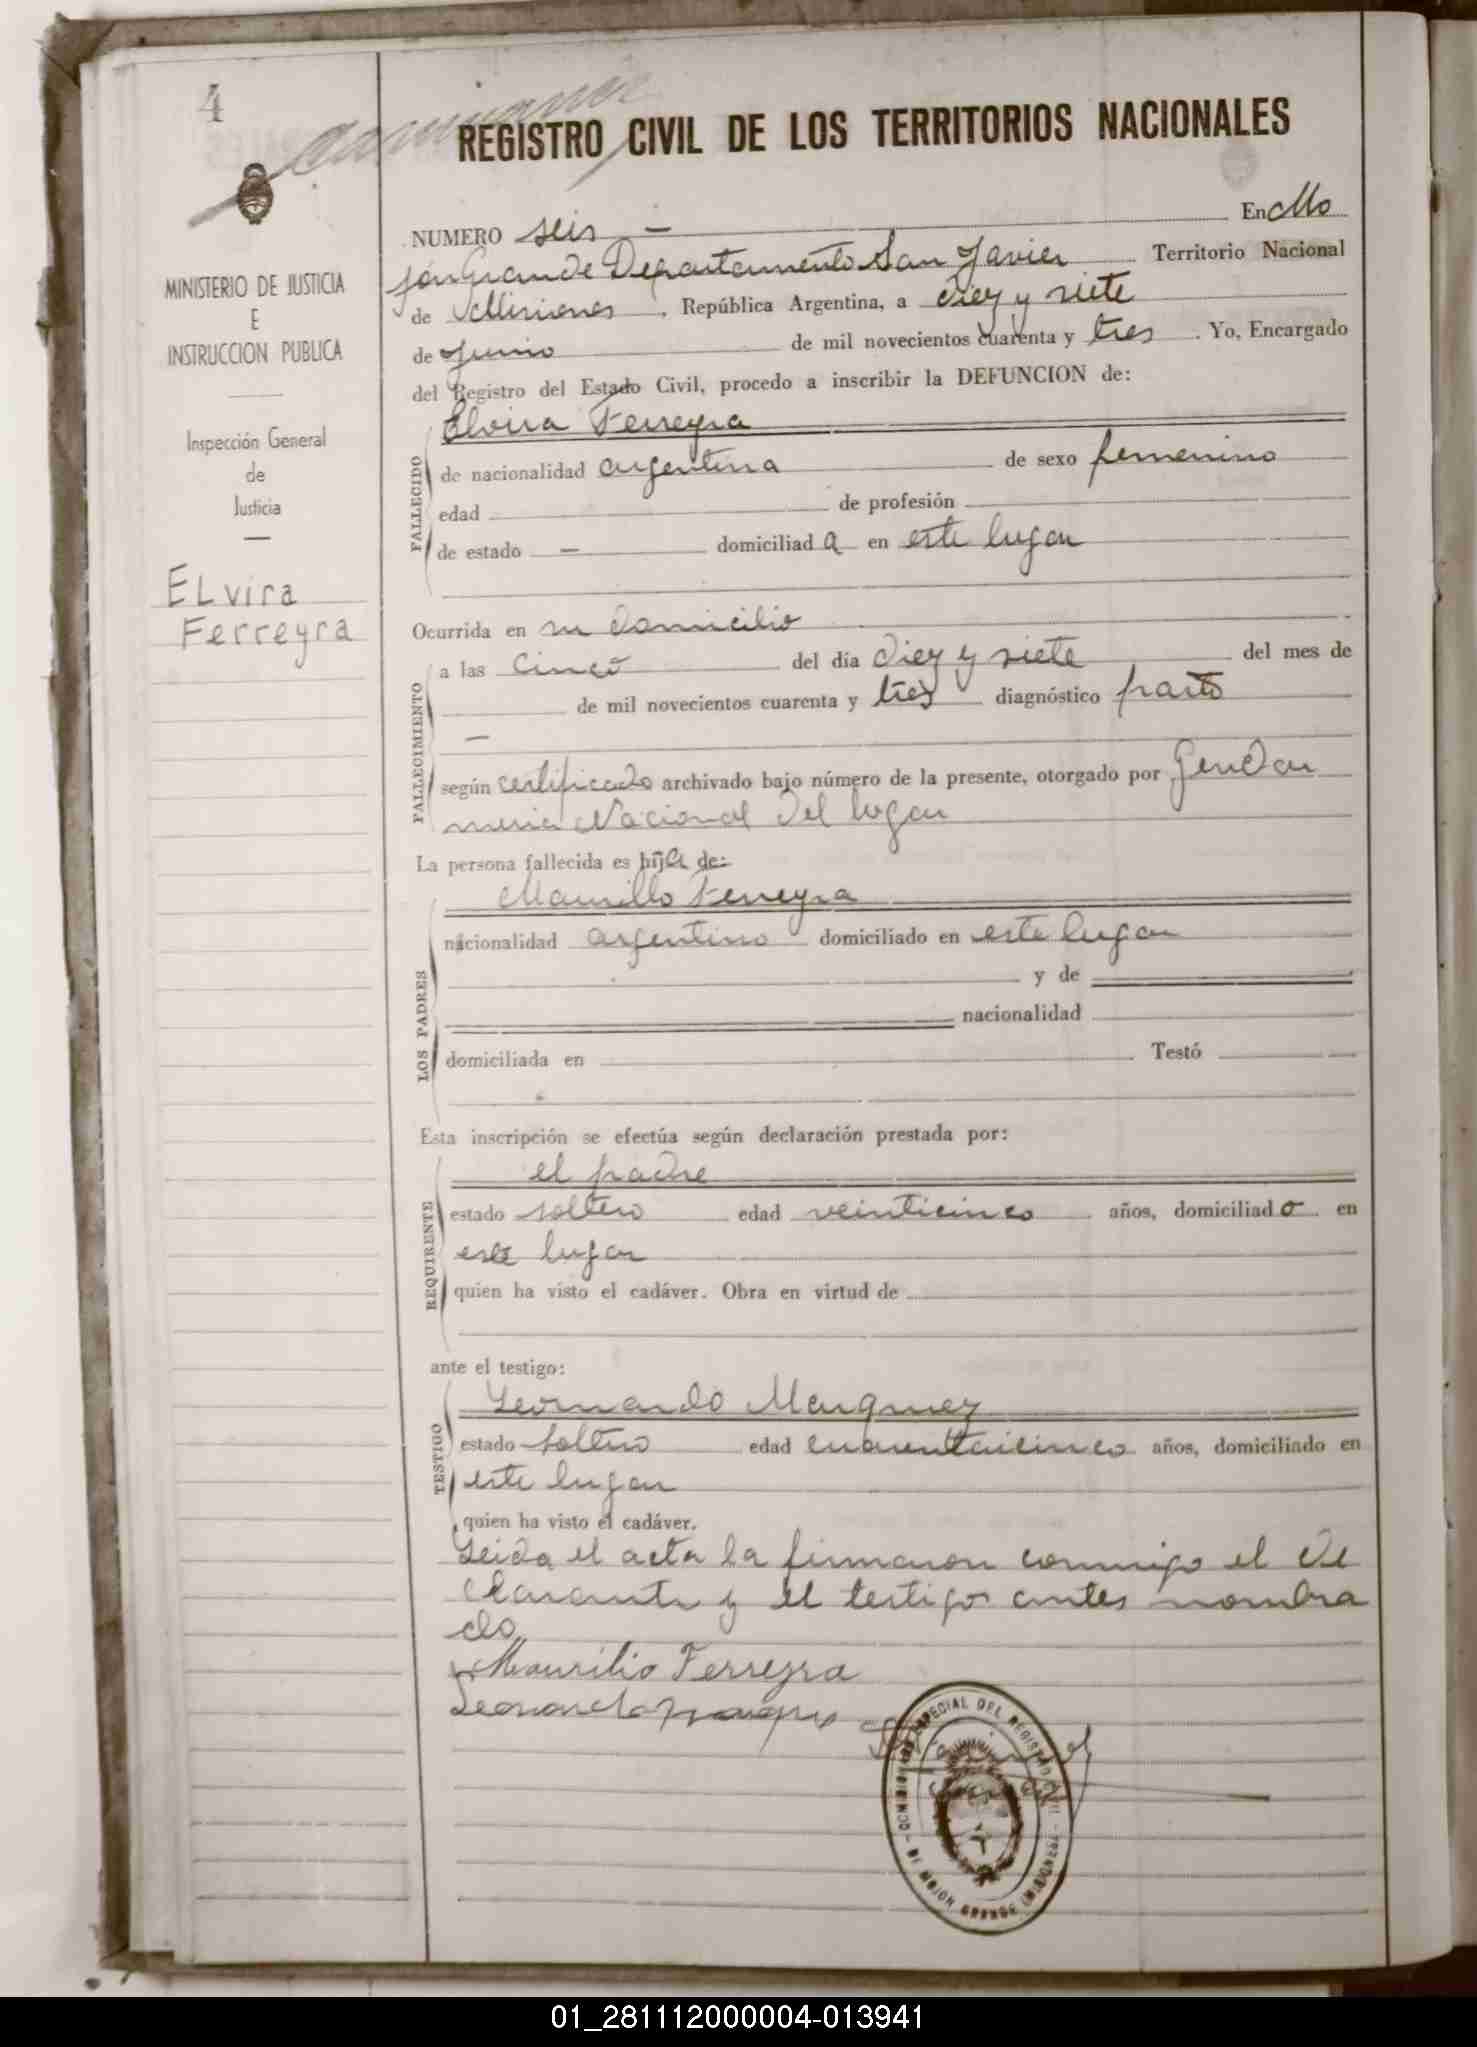 4
REGISTRO CIVIL DE LOS TERRITORIOS NACIONALES
MINISTERIO DE JUSTICIA
E
INSTRUCCION PUBLICA
Inspección General
de
Justicia
ELvira
Ferreyra
NUMERO seis — En Mo
jón Grande Departamento San Javier Territorio Nacional
de Misiones , República Argentina, a diez y siete
de Junio de mil novecientos cuarenta y tres . Yo, Encargado
del Registro del Estado Civil, procedo a inscribir la DEFUNCION de:
FALLECIDO
Elvira Ferreyra
de nacionalidad argentina de sexo femenino
edad de profesión
de estado — domiciliad a en este lugar
Ocurrida en su domicilio
FALLECIMIENTO
a las cinco del día diez y siete del mes de
de mil novecientos cuarenta y tres diagnóstico parto
—
según certificado archivado bajo número de la presente, otorgado por Gendar
meria Nacional del lugar
La persona fallecida es hija de:
LOS PADRES
Maurillo Ferreyra
nacionalidad argentino domiciliado en este lugar
y de
nacionalidad
domiciliada en Testó
Esta inscripción se efectúa según declaración prestada por:
REQUIRENTE
el padre
estado soltero edad veinticinco años, domiciliado en
este lugar
quien ha visto el cadáver. Obra en virtud de
ante el testigo:
TESTIGO
Leornardo Marquez
estado soltero edad cuarentaicinco años, domiciliado en
este lugar
quien ha visto el cadáver.
Leida el acta la firmaron conmigo el de
clarante y el testigo antes nombra
do
Maurilio Ferreyra
Leonardo Marquez
ESPECIAL DEL REGISTRO
DE MOJON GRANDE (MISIONES)
01_281112000004-013941